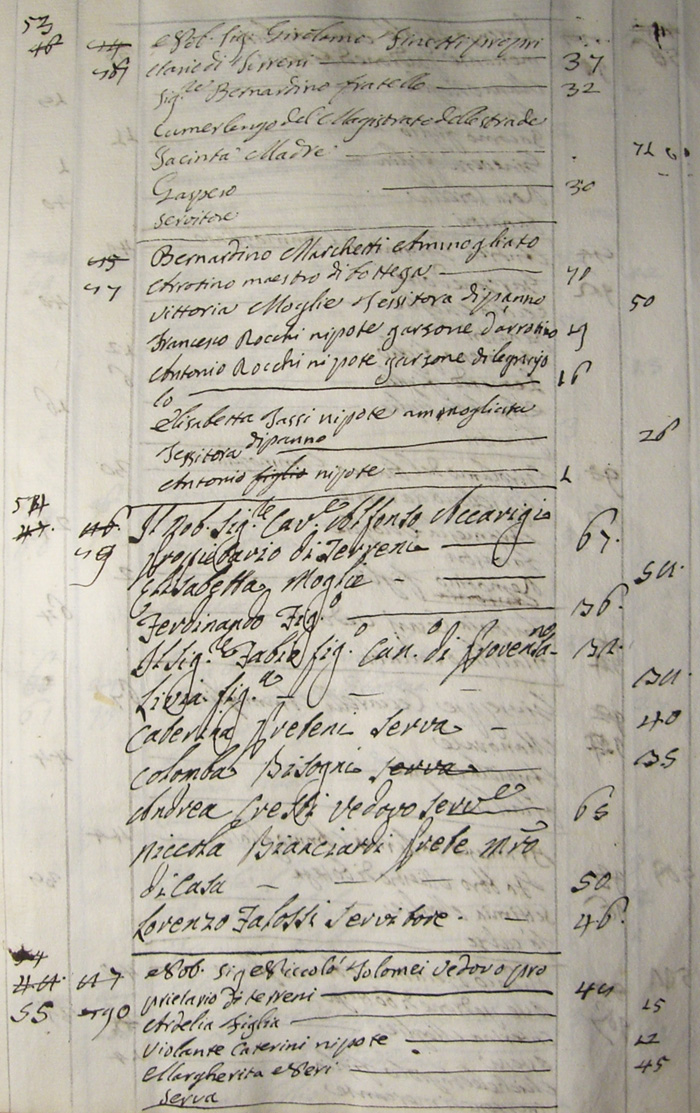 53
46 44 Nob. Sig. Girolamo propri
etario di Terreni 37
Sig.re Bernardino fratello 32
Camerlengo del Magistrato delle strade
Jacinta Madre 71
Gaspero 30
Servitore
45 Bernardino Marchetti Ammogliato
Arrotino maestro di bottega
Vittoria Moglie Tessitora di panno 50
Francesco Rocchi nipote garzone d'arrotino 19
Antonio Rocchi nipote garzone di legnajo
lo 16
Elisabetta Tassi nipote ammogliata
Tessitora di panno 26
Antonio figlio nipote
46. Il Nob. Sig.re Cav.re Alfonso Accarigi
proprietario di Terreni 67.
Elisabetta Moglie
Ferdinando Fig.o 36.
Il Sig.re Fabio fig.o Can.o di
Livia fig.a
Caterina serva 40
Colomba Bisogni serva 35
Andrea vedovo serv.e 65
Niccola Bianciardi Prete
di Casa 50
Lorenzo Falossi Servitore. 46.
54
44. 47 Nob. Sig. Niccolò Tolomei Vedovo pro
55 90 prietario di terreni
Ardelia Figlia 15
Violante Caterini nipote 12
Margherita Neri 45
Serva